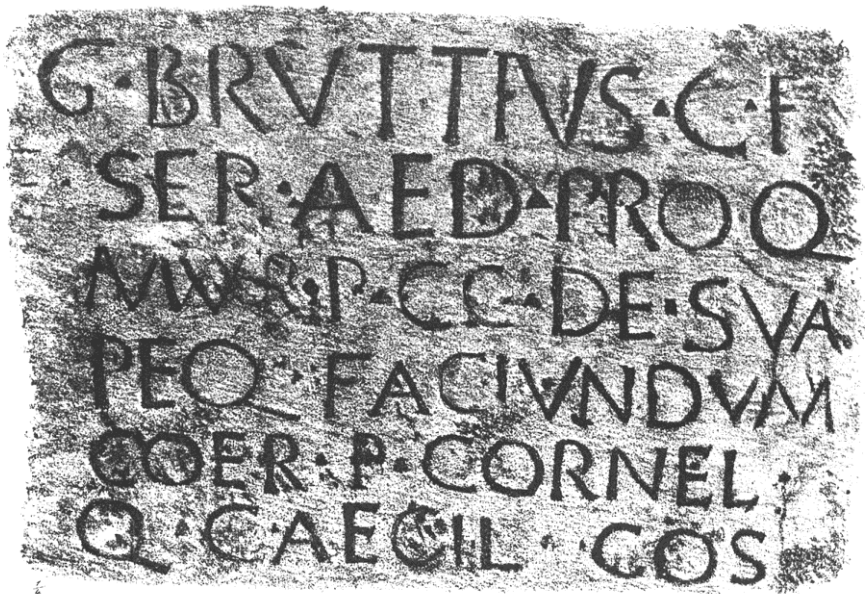 G·BRVTTIVS·C·F
SER·AED·PROQ
MVR·P·CC·DE·SVA
PEQ·FACIVNDVM
COER·P·CORNEL
Q·CAECIL·COS